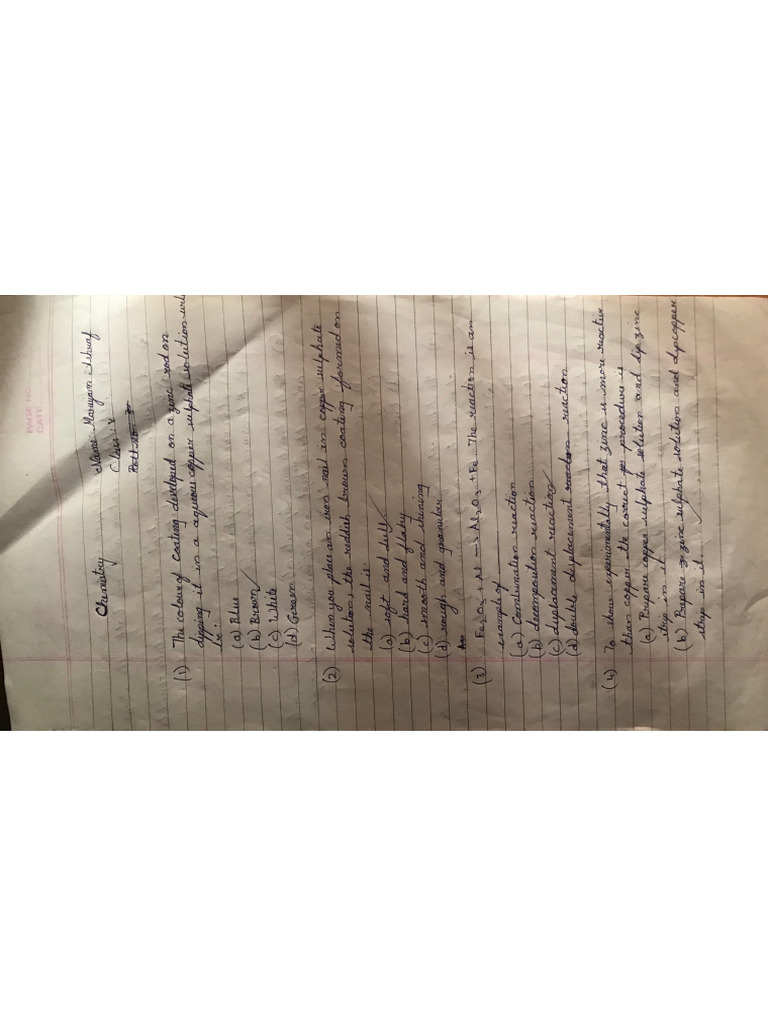 PAGE NO.
DATE
Chemistry
Name:- Maryam Ashraf
Class:- X
Roll no
(1) The colour of coating developed on a zinc rod on
dipping it in a aqueous copper sulphate solution will
be:
(a) Blue
(b) Brown ✓
(c) White
(d) Green
(2) When you place an iron nail in copper sulphate
solution, the reddish brown coating formed on
the nail is
(a) soft and dull ✓
(b) hard and flaky
(c) smooth and shining
(d) rough and granular
(3) Fe₂O₃ + Al → Al₂O₃ + Fe. The reaction is an
example of
(a) Combination reaction
(b) decomposition reaction
(c) displacement reaction ✓
(d) double displacement reaction
(4) To show experimentally that zinc is more reactive
than copper the correct procedure is
(a) Prepare copper sulphate solution and dip zinc
strip in it
(b) Prepare zinc sulphate solution and dip copper
strip in it. ✓